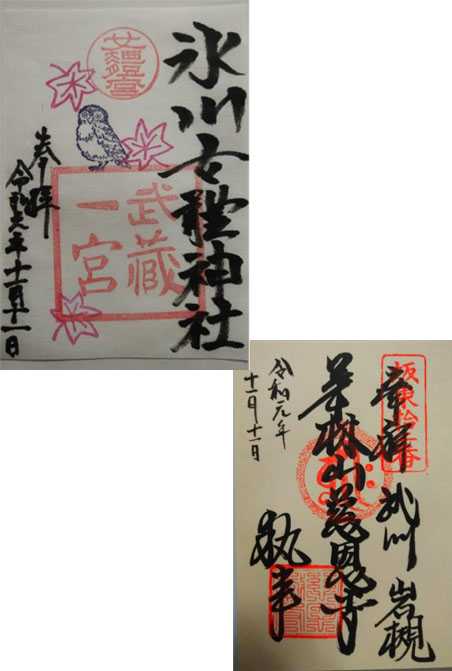 氷川女體神社
武蔵
一宮
奉拝
令和元年十一月十一日
坂東拾二番
奉拝 武州 岩槻
華林山慈恩寺
執事
令和元年
十一月十一日